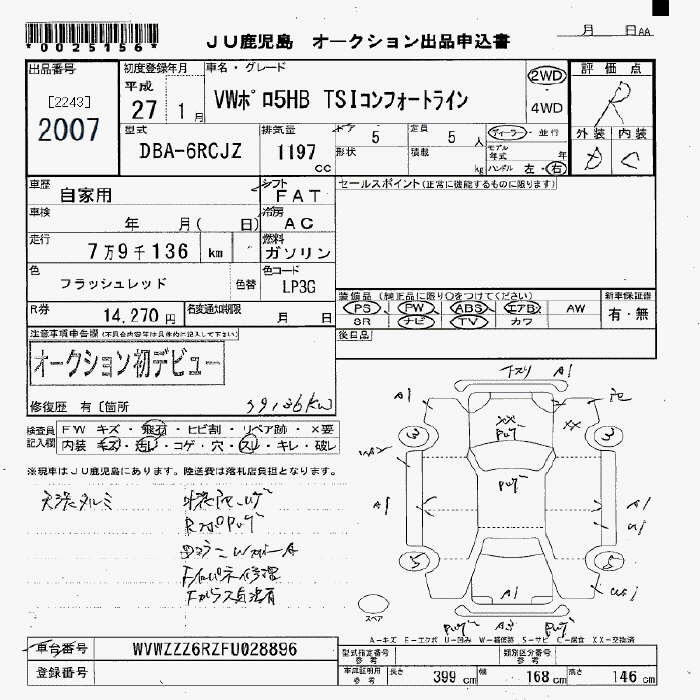 *0025156*
JU鹿児島 オークション出品申込書
月 日AA
出品番号
[2243]
2007
初度登録年月
平成
27 1月
車名・グレード
VWポロ5HB TSIコンフォートライン
2WD
4WD
評価点
R
外装 内装
D C
型式
DBA-6RCJZ
排気量
1197
cc
ドア 5
形状
定員 5 人
積載 kg
ディーラー・並行
モデル年式 年
ハンドル 左・右
車歴
自家用
シフト
FAT
セールスポイント(正常に機能するものに限ります)
車検
年 月( 日)
冷房
AC
走行
7万9千136 km
燃料
ガソリン
色
フラッシュレッド
色替
色コード
LP3G
装備品 (純正品に限り○をつけてください)
PS PW ABS エアB AW
SR ナビ TV カワ
新車保証書
有・無
R券
14,270円
名変通知期限
月 日
後日品
注意事項申告欄(不具合内容等は具体的に記入して下さい)
オークション初デビュー
修復歴 有 [箇所
79136km
検査員記入欄
FW キズ・飛石・ヒビ割・リペア跡・×要
内装 キズ・汚レ・コゲ・穴・スレ・キレ・破レ
※現車はJU鹿児島にあります。陸送費は落札店負担となります。
天張タルミ
下スリ A1
A1
3
XX
XX
3
A1
A1
5
5
A1
スペア
A3
A-キズ E-エクボ U-凹み W-補修跡 S-サビ C-腐食 XX-交換済
車台番号
WVWZZZ6RZFU028896
登録番号
型式指定番号
参考
類別区分番号
参考
車庫証明
参考
長さ 399 cm
幅 168 cm
高さ 146 cm